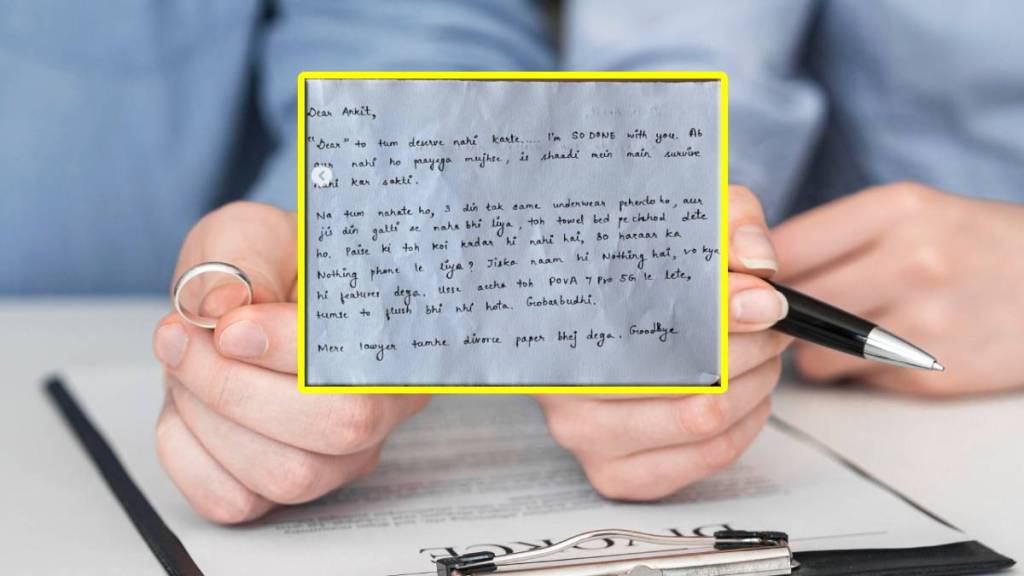 Dear Ankit,
"Dear" to tum deserve nahi karte..... I'm SO DONE with you. Ab
aur nahi ho payega mujhse, is shaadi mein main survive
nahi kar sakti.
Na tum nahate ho, 3 din tak same underwear pehente ho, aur
jis din galti se naha bhi liya, toh towel bed pe chhod dete
ho. Paise ki toh koi kadar hi nahi hai, 80 hazaar ka
Nothing phone le liya? Jiska naam hi Nothing hai, vo kya
hi features dega. Usse accha toh POVA 7 Pro 5G le lete,
tumse to flush bhi nhi hota. Gobarbudhi.
Mere lawyer tumhe divorce paper bhej dega. Goodbye
DIVORCE